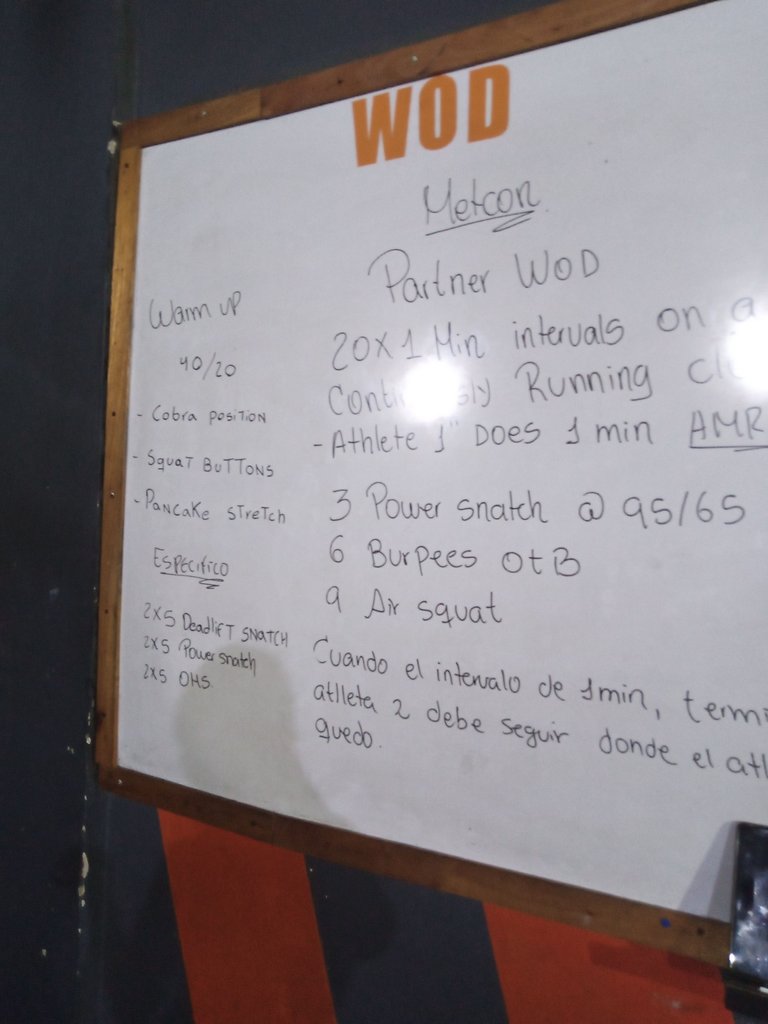 WOD
Metcon
Partner WOD
20x1 Min intervals on a
Running
- Athlete 1" Does 1 min
3 Power snatch @ 95/65
6 Burpees otB
9 Air squat
Cuando el intervalo de 1min,
atlleta 2 debe seguir donde el
quedo.
Warm up
40/20
- Cobra position
- Squat Buttons
- Pancake stretch
Especifico
2x5 Deadlift snatch
2x5 Power snatch
2x5 OHS